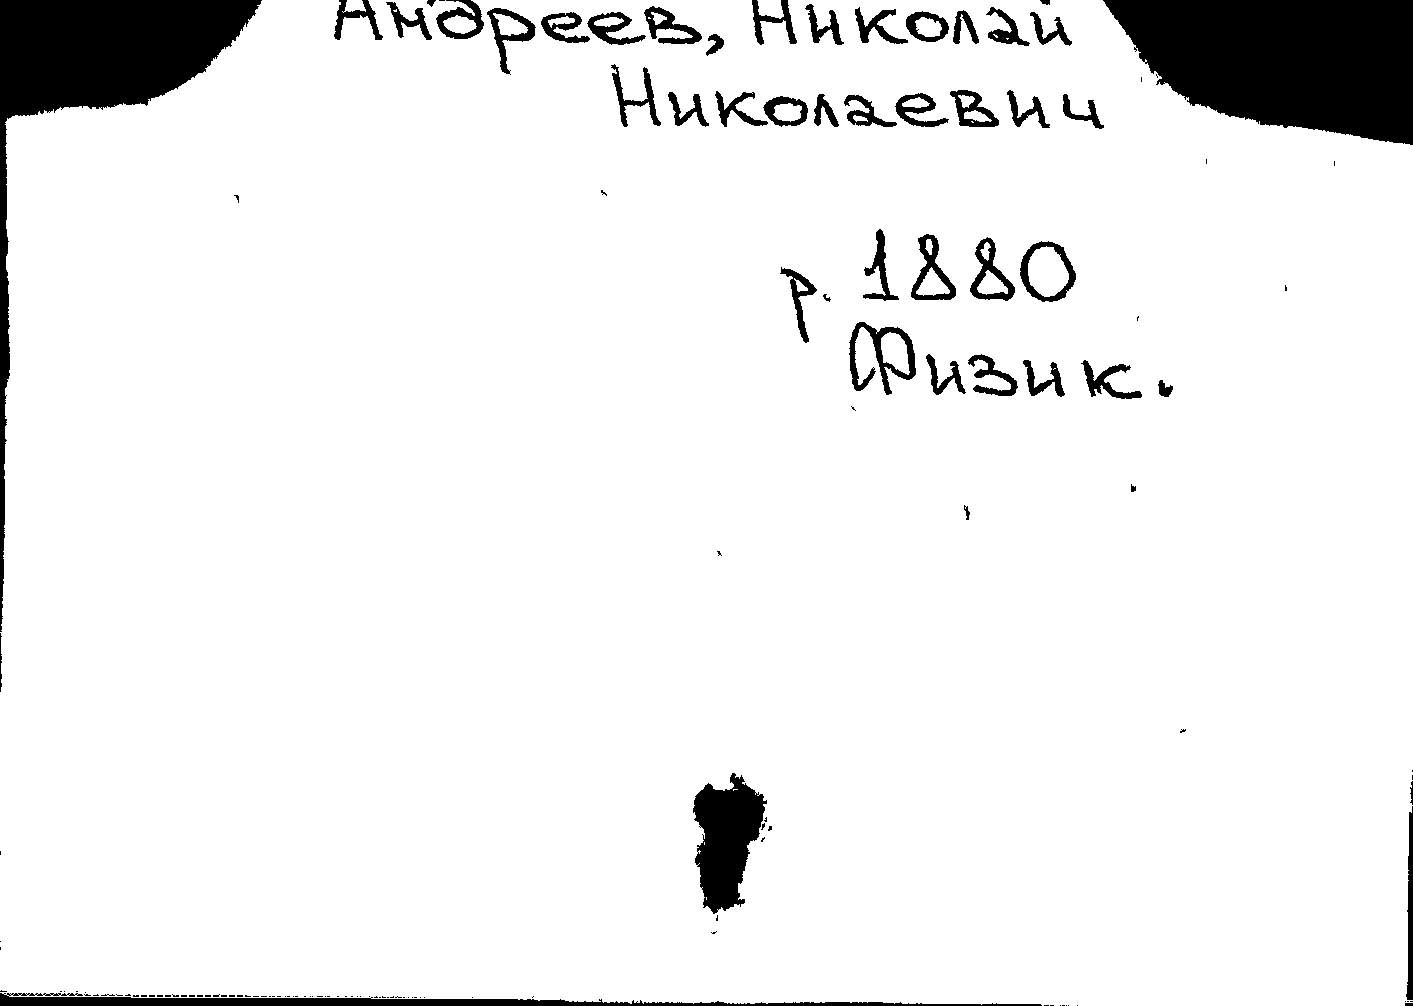 Андреев, Николай
Николаевич
р. 1880
Физик.